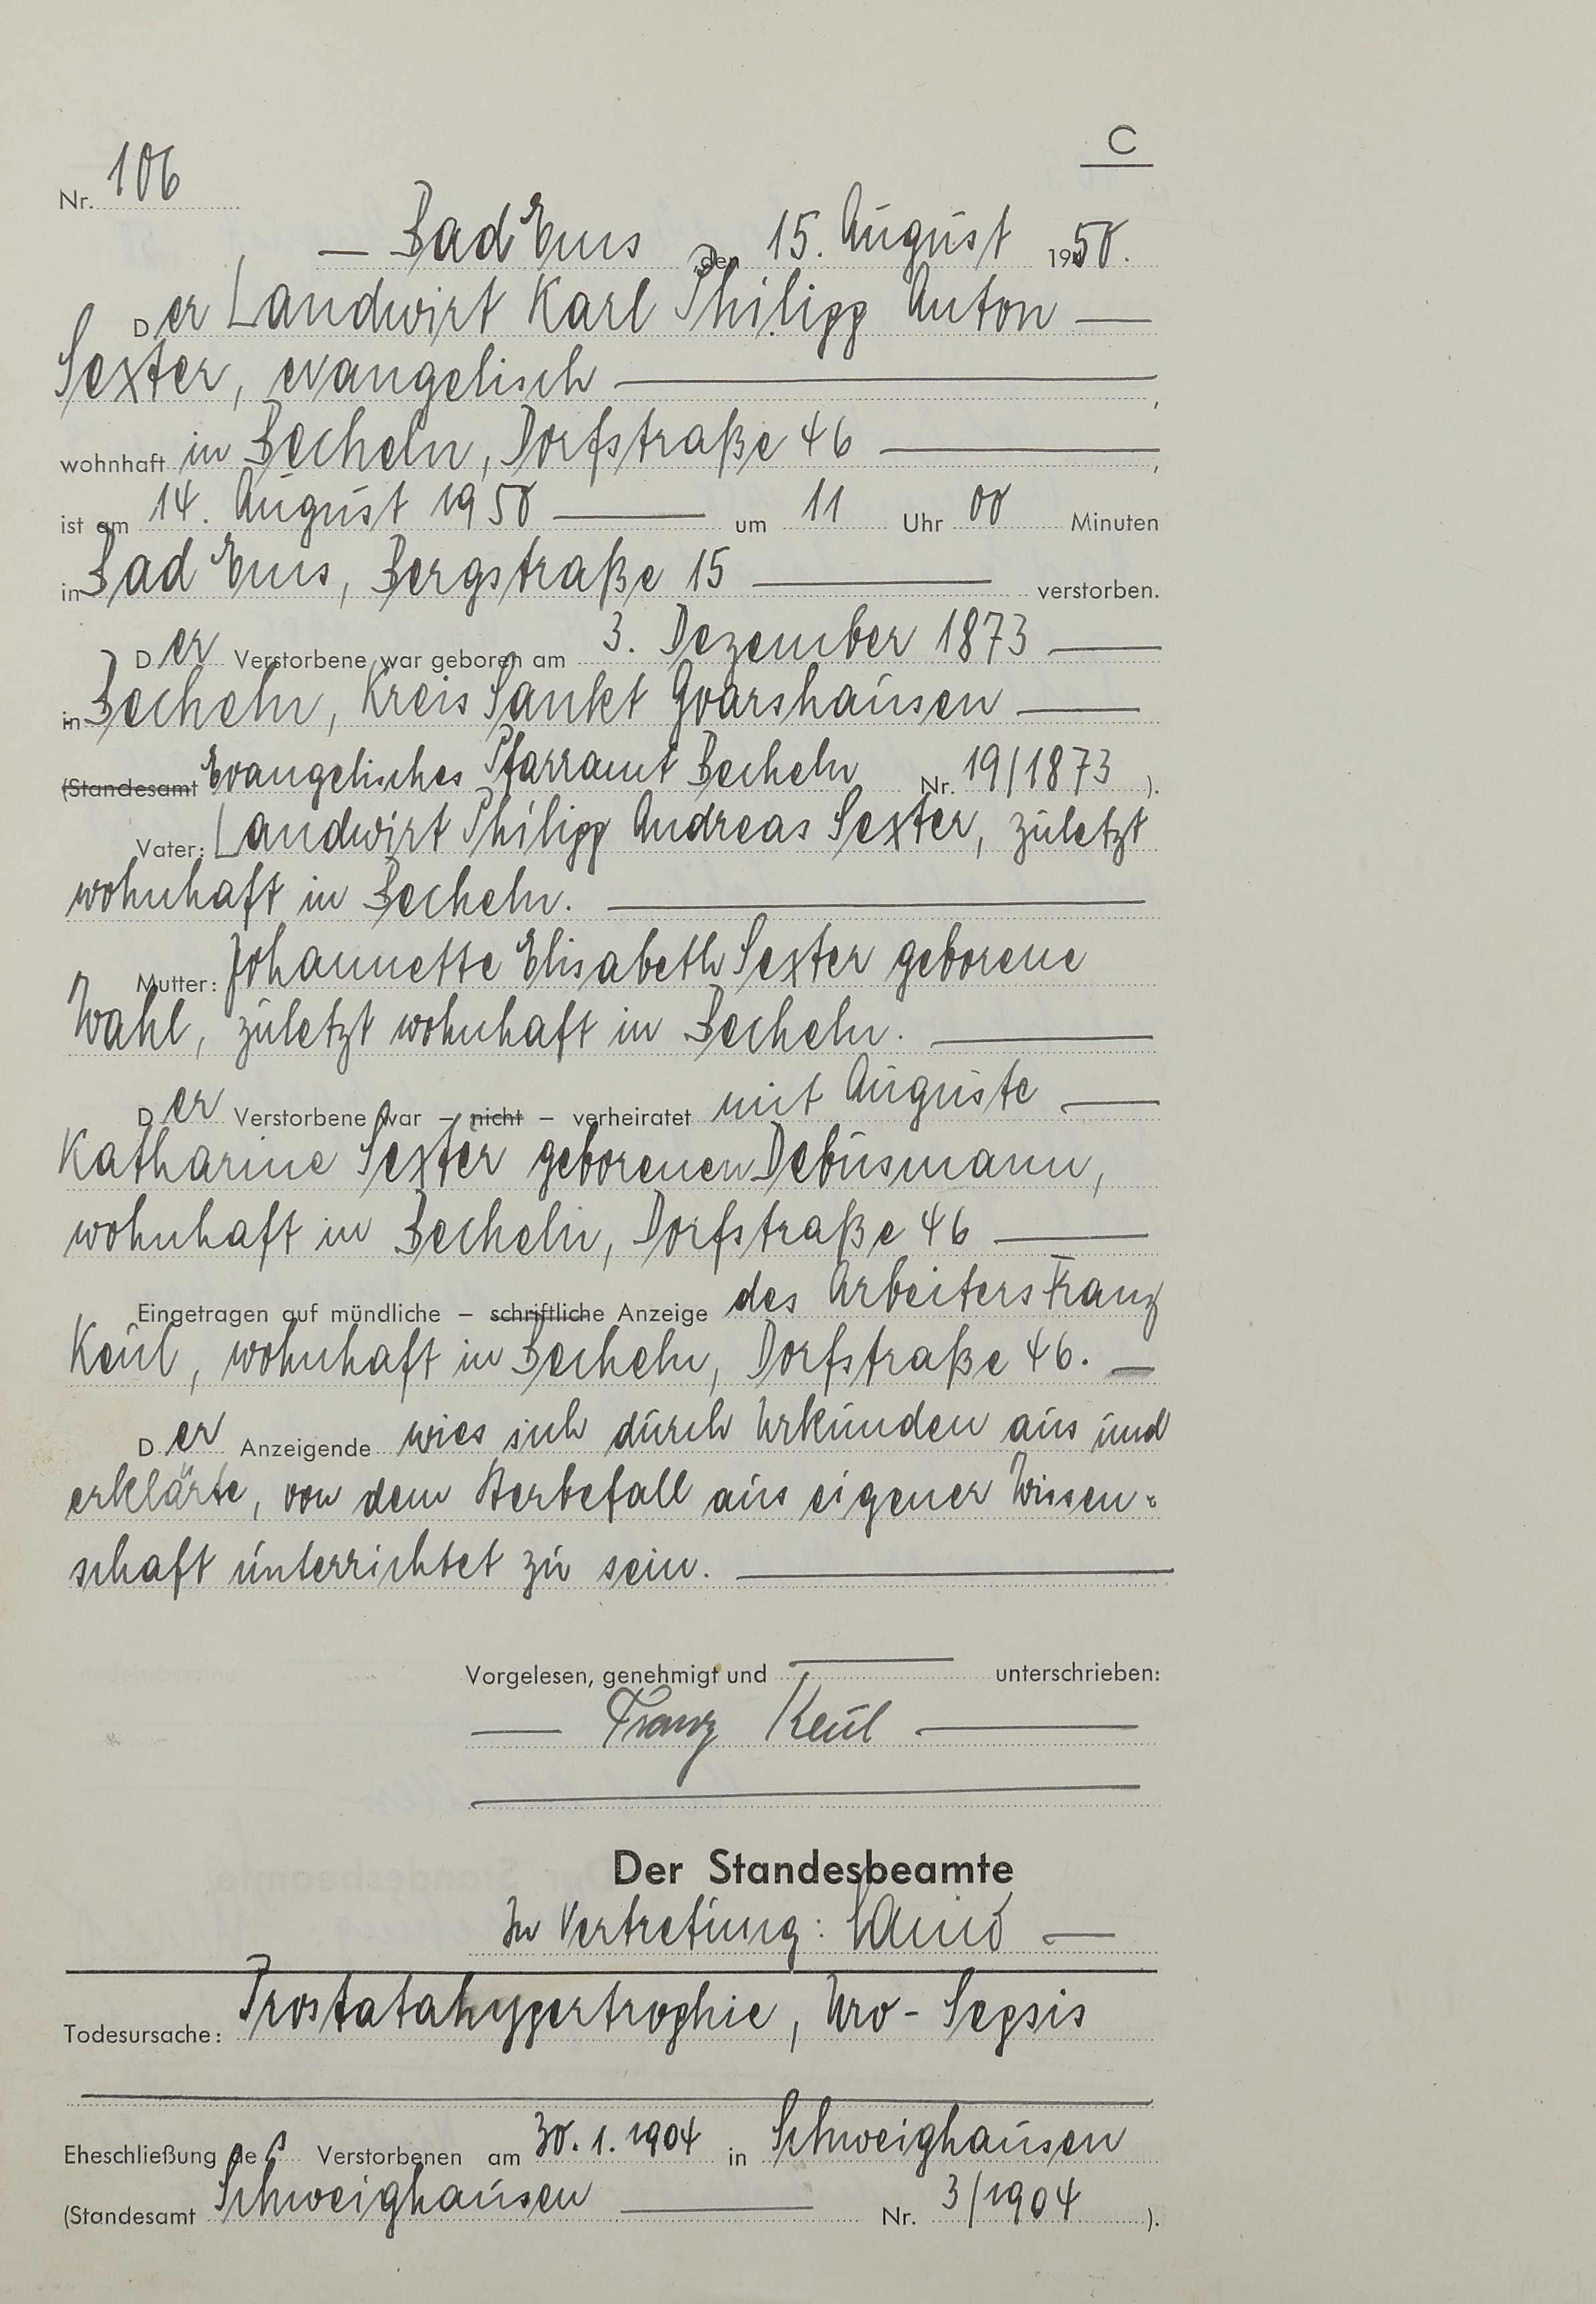 C
Nr. 106
— Bad Ems, den 15. August 1950.
Der Landwirt Karl Philipp Anton —
Sexter, evangelisch —,
wohnhaft in Becheln, Dorfstraße 46 —,
ist am 14. August 1950 — um 11 Uhr 00 Minuten
in Bad Ems, Bergstraße 15 — verstorben.
Der Verstorbene war geboren am 3. Dezember 1873 —
in Becheln, Kreis Sankt Goarshausen —
(Standesamt Evangelisches Pfarramt Becheln Nr. 19/1873).
Vater: Landwirt Philipp Andreas Sexter, zuletzt
wohnhaft in Becheln. —
Mutter: Johannette Elisabeth Sexter geborene
Wahl, zuletzt wohnhaft in Becheln. —
Der Verstorbene war – nicht – verheiratet mit Auguste —
Katharine Sexter geborenen Debusmann,
wohnhaft in Becheln, Dorfstraße 46 —
Eingetragen auf mündliche – schriftliche Anzeige des Arbeiters Franz
Keul, wohnhaft in Becheln, Dorfstraße 46. —
Der Anzeigende wies sich durch Urkunden aus und
erklärte, von dem Sterbefall aus eigener Wissen-
schaft unterrichtet zu sein. —
Vorgelesen, genehmigt und — unterschrieben:
— Franz Keul —
Der Standesbeamte
In Vertretung: —
Todesursache: Prostatahypertrophie, Uro-Sepsis
Eheschließung des Verstorbenen am 30.1.1904 in Schweighausen
(Standesamt Schweighausen — Nr. 3/1904).